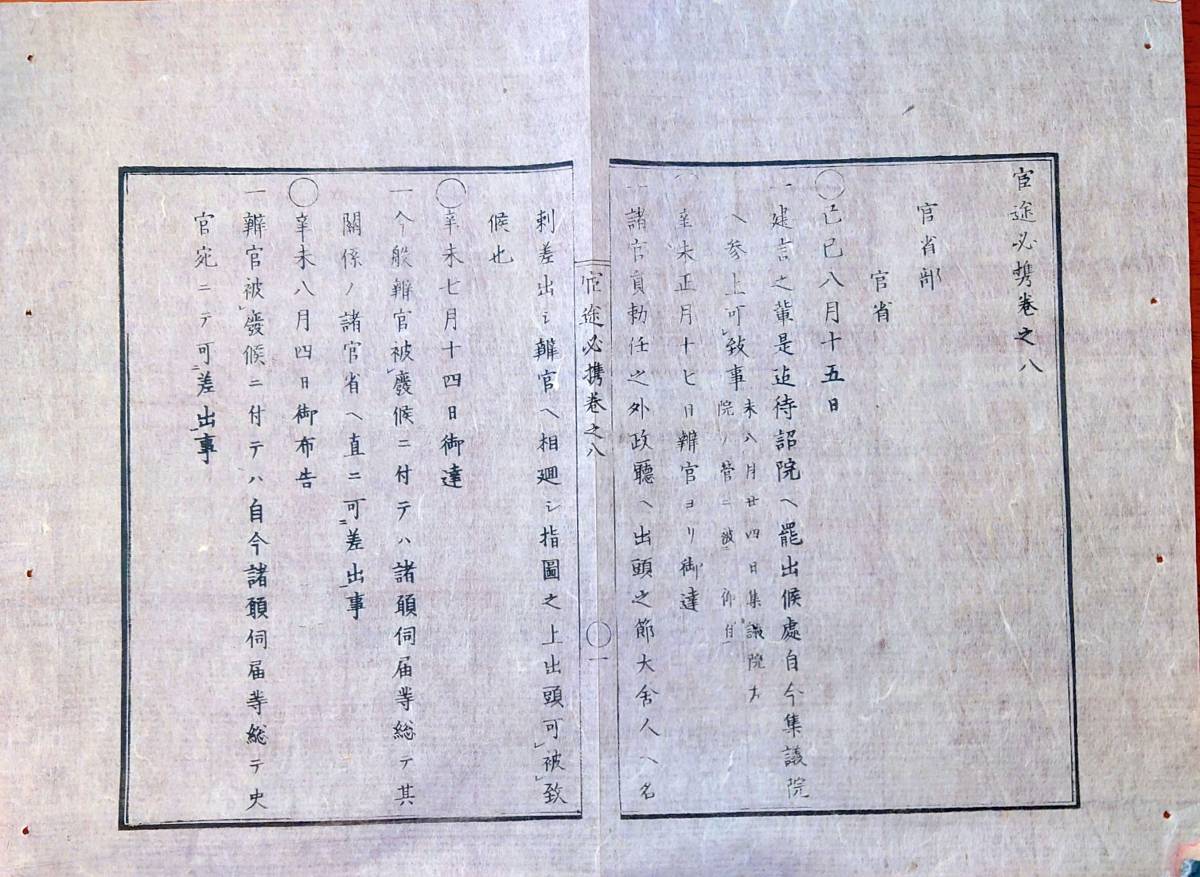 宦途必携巻之八
官省部
官省
〇己巳八月十五日
一建言之輩是迠待詔院ヘ罷出候處自今集議院
ヘ参上可致事
未八月廿四日集議院左
院ノ管ニ被仰付
〇辛未正月十七日辨官ヨリ御達
一諸官員勅任之外政廳ヘ出頭之節大舎人ヘ名
宦途必携巻之八
〇一
刺差出シ辨官ヘ相廻シ指圖之上出頭可被致
候也
〇辛未七月十四日御達
一今般辨官被廢候ニ付テハ諸願伺届等総テ其
關係ノ諸官省ヘ直ニ可差出事
〇辛未八月四日御布告
一辨官被廢候ニ付テハ自今諸願伺届等総テ史
官宛ニテ可差出事